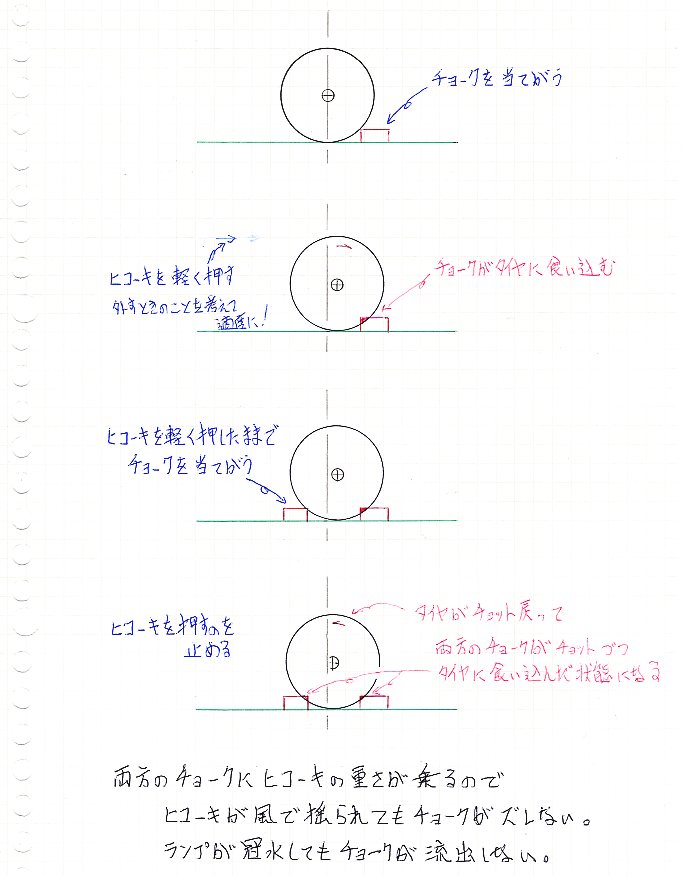 チョークを当てがう
ヒコーキを軽く押す
外すときのことを考えて
適度に!
チョークがタイヤに食い込む
ヒコーキを軽く押したままで
チョークを当てがう
ヒコーキを押すのを
止める
タイヤがチョット戻って
両方のチョークがチョットヅツ
タイヤに食い込んだ状態になる
両方のチョークにヒコーキの重さが乗るので
ヒコーキが風で揺られてもチョークがズレない。
ランプが冠水してもチョークが流出しない。